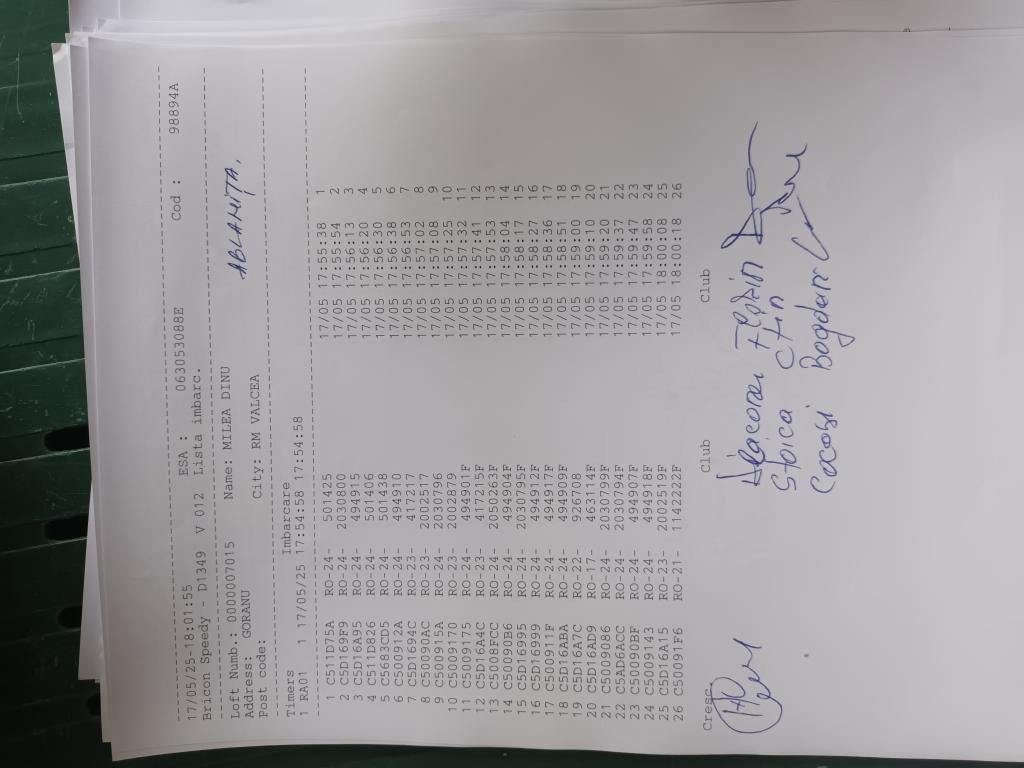 17/05/25-18:01:55 ESA : 063053088E Cod : 98894A
Bricon Speedy - D1349 V 012 Lista imbarc.
Loft Numb.: 0000007015 Name: MILEA DINU
Address: GORANU City: RM VALCEA
Post code:
ABLAHIȚA.
Timers Imbarcare
1 RA01 1 17/05/25 17:54:58 17:54:58
1 C511D75A RO-24- 501425 17/05 17:55:38 1
2 C5D169F9 RO-24- 2030800 17/05 17:55:54 2
3 C5D16A95 RO-24- 494915 17/05 17:56:13 3
4 C511D826 RO-24- 501406 17/05 17:56:20 4
5 C5683CD5 RO-24- 501438 17/05 17:56:30 5
6 C500912A RO-24- 494910 17/05 17:56:38 6
7 C5D1694C RO-23- 417217 17/05 17:56:53 7
8 C50090AC RO-23- 2002517 17/05 17:57:02 8
9 C500915A RO-24- 2030796 17/05 17:57:08 9
10 C5009170 RO-23- 2002879 17/05 17:57:25 10
11 C5009175 RO-24- 494901F 17/05 17:57:32 11
12 C5D16A4C RO-23- 417215F 17/05 17:57:41 12
13 C5008FCC RO-24- 2050263F 17/05 17:57:53 13
14 C50090B6 RO-24- 494904F 17/05 17:58:04 14
15 C5D16995 RO-24- 2030795F 17/05 17:58:17 15
16 C5D16999 RO-24- 494912F 17/05 17:58:27 16
17 C500911F RO-24- 494917F 17/05 17:58:36 17
18 C5D16ABA RO-24- 494909F 17/05 17:58:51 18
19 C5D16A7C RO-22- 926708 17/05 17:59:00 19
20 C5D16AD9 RO-17- 463114F 17/05 17:59:10 20
21 C5009086 RO-24- 2030799F 17/05 17:59:20 21
22 C5AD6ACC RO-24- 2030794F 17/05 17:59:37 22
23 C50090BF RO-24- 494907F 17/05 17:59:47 23
24 C5009143 RO-24- 494918F 17/05 17:59:58 24
25 C5D16A15 RO-23- 2002519F 17/05 18:00:08 25
26 C50091F6 RO-21- 1142222F 17/05 18:00:18 26
Cresc. Club Club
Diaconu Florin
Stoica Ctin
Cocosi Bogdan